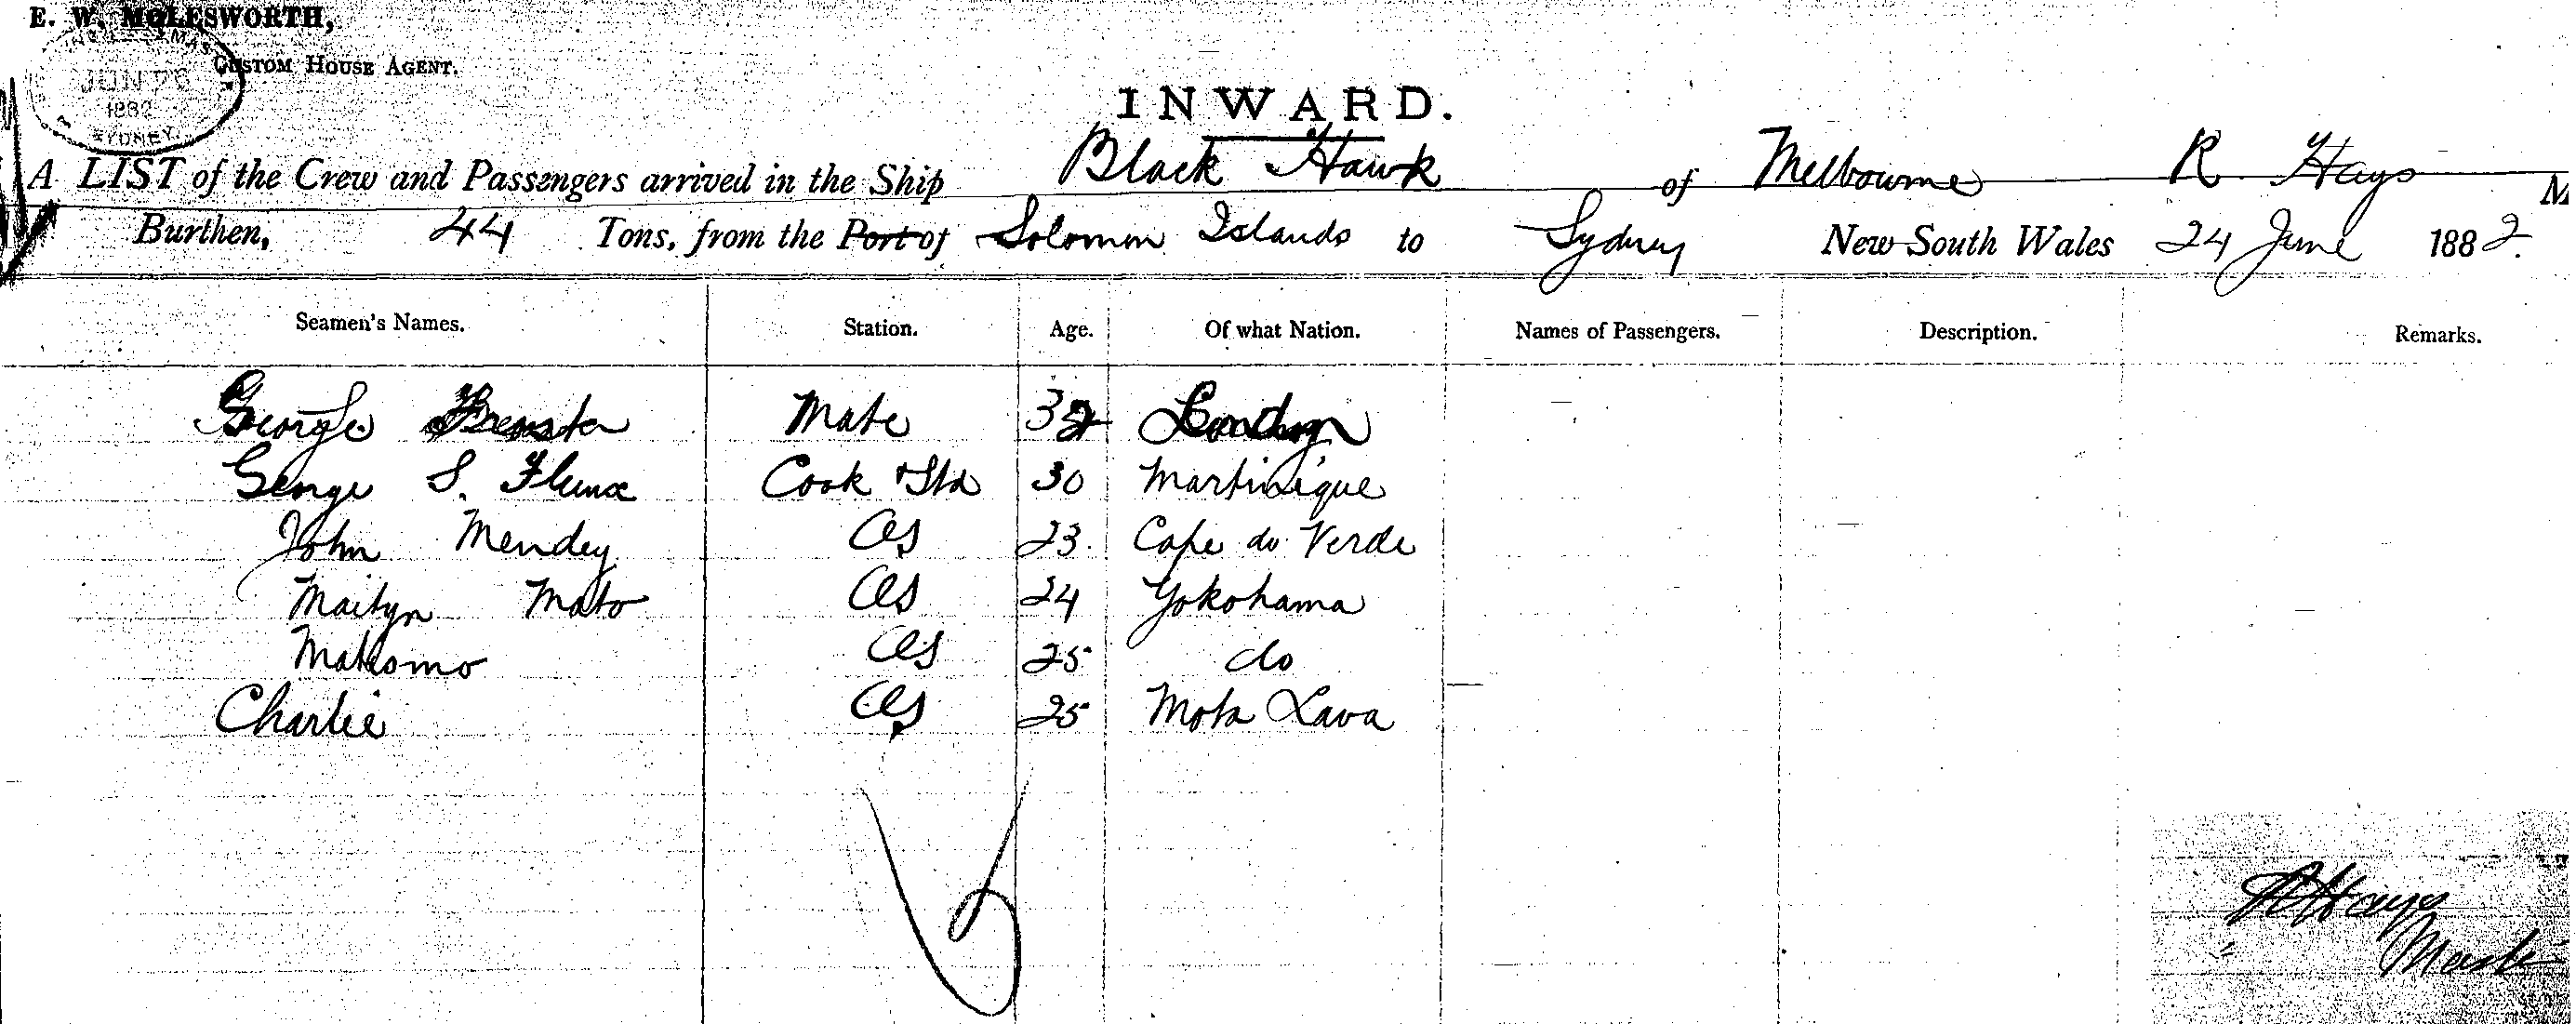 E. W. MOLESWORTH,
CUSTOM HOUSE AGENT.
1882
SYDNEY
INWARD.
A LIST of the Crew and Passengers arrived in the Ship Black Hawk of Melbourne R Hays M
Burthen, 44 Tons, from the Port of Solomon Islands to Sydney New South Wales 24 June 1882.
Seamen's Names. Station. Age. Of what Nation. Names of Passengers. Description. Remarks.
George Mate 32 London
George S. Cook & Std 30 Martinique
John Mendey AS 23 Cape do Verde
Maityn Mato AS 24 Yokohama
Matsomo AS 25 do
Charlie AS 25 Mota Lava
R Hays
Master